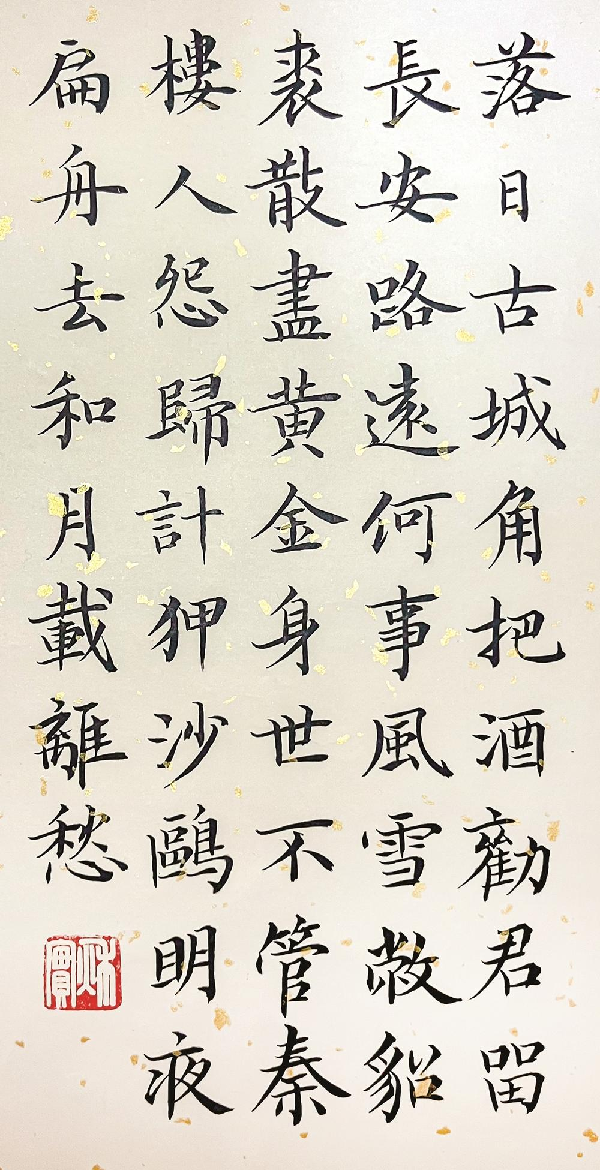 落日古城角把酒勸君留
長安路遠何事風雪敝貂
裘散盡黄金身世不管秦
樓人怨歸計狎沙鷗明夜
扁舟去和月載離愁
秋實